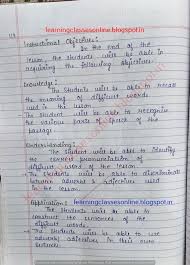 learningclassesonline.blogspot.in
Instructional Objectives:
In the end of the
lesson, the students will be able in
acquiring the following objectives.
Knowledge:
The Students will be able to recall
the meaning of difficult words
used in the lesson.
The Students will be able to recognize
the various parts of speech of the
passage.
Understanding:
The Student will be able to identify
the correct pronunciation of
difficult word of the lesson.
The Students will be able to discriminate
between adverb & adjectives used
in the lesson.
Application:
learningclassesonline.blogspot.in
The Students will be able to
construct the sentences of the
difficult words.
The Students will be able to use
adverb, adjectives in their own
sentences.